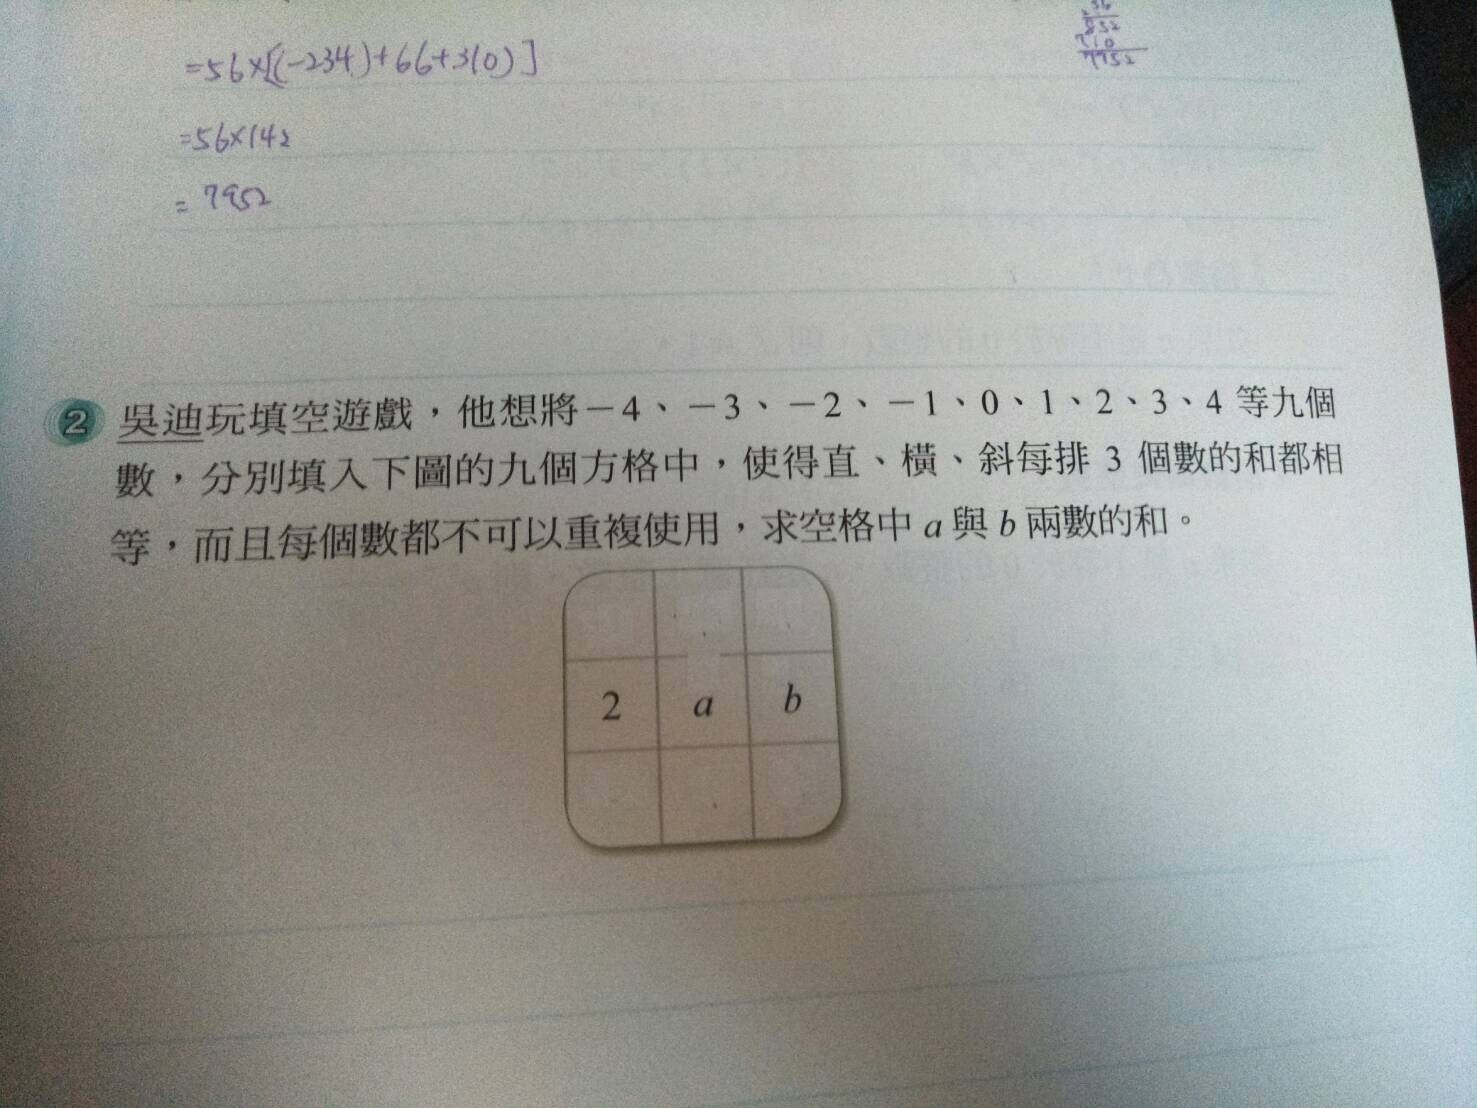 =56×[(-234)+66+310)]
=56×142
=7952
852
710
7952
2 吳迪玩填空遊戲，他想將－4、－3、－2、－1、0、1、2、3、4 等九個
數，分別填入下圖的九個方格中，使得直、橫、斜每排 3 個數的和都相
等，而且每個數都不可以重複使用，求空格中 a 與 b 兩數的和。
2 a b